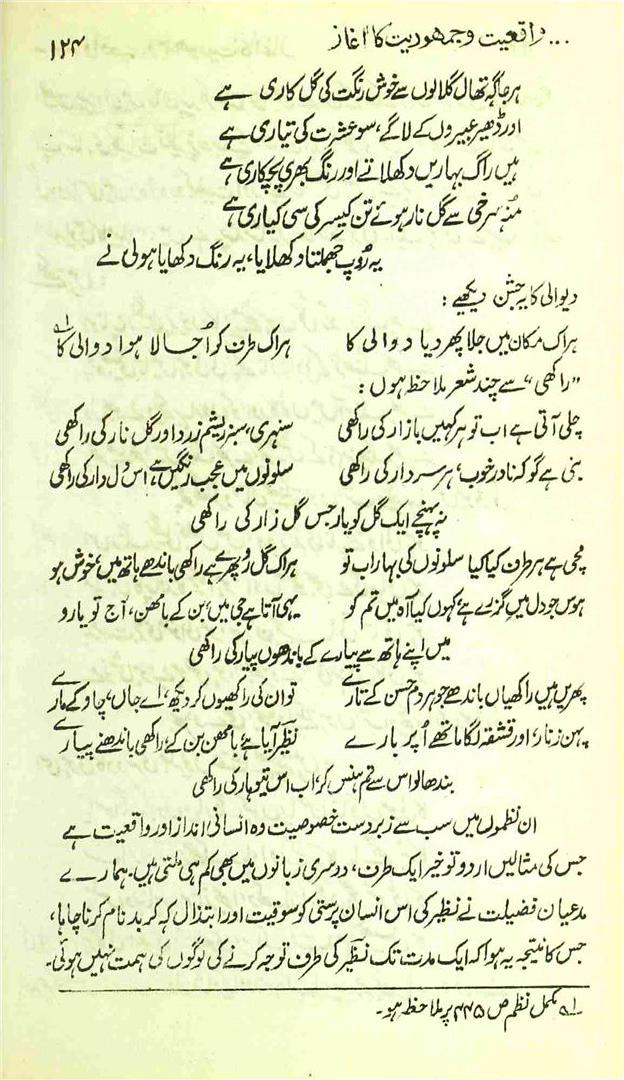 ... واقعیت و جمہوریت کا آغاز ۱۲۴
ہر جاگہ تھال گلالوں سے خوش رنگت کی گل کاری ہے
اور ڈھیر عبیروں کے لاگے، سو عشرت کی تیاری ہے
ہیں راگ بہاریں دکھلاتے اور رنگ بھری پچکاری ہے
منہ سرخی سے گل نار ہوئے تن کیسر کی سی کیاری ہے
یہ رُوپ جھمکتا دکھلایا، یہ رنگ دکھایا ہولی نے
دیوالی کا یہ جشن دیکھیے :
ہر اک مکان میں جلا پھر دیا دوالی کا ہر اک طرف کو اُجالا ہوا دوالی کا ؎۱
”راکھی“ سے چند شعر ملاحظہ ہوں :
چلی آتی ہے اب تو ہر کہیں بازار کی راکھی سنہری، سبز، ریشم، زرد اور گل نار کی راکھی
بنی ہے گو کہ نادر خوب، ہر سردار کی راکھی سلونوں میں عجب رنگیں ہے، اس دل دار کی راکھی
نہ پہنچے ایک گل کو یار جس گل زار کی راکھی
مچی ہے ہر طرف کیا کیا سلونوں کی بہار اب تو ہر اک گل رو پھرے ہے راکھی باندھے ہاتھ میں، خوش ہو
ہوس جو دل میں گزرے ہے، کہوں کیا آہ میں تم کو یہی آتا ہے جی میں، بن کے بامھن، آج تو یارو
میں اپنے ہاتھ سے پیارے کے باندھوں پیار کی راکھی
پھریں ہیں راکھیاں باندھے جو ہر دم حسن کے تارے تو ان کی راکھیوں کو دیکھ، اے جاں، چاو کے مارے
پہن زنار، اور قشقہ لگا ماتھے اُپر بارے نظیر آیا ہے بامھن بن کے، راکھی باندھنے پیارے
بندھا لو اس سے تم ہنس کر، اب اس تیوہار کی راکھی
ان نظموں میں سب سے زبردست خصوصیت وہ انسانی انداز اور واقعیت ہے
جس کی مثالیں اردو تو خیر ایک طرف، دوسری زبانوں میں بھی کم ہی ملتی ہیں۔ ہمارے
مدعیان فضیلت نے نظیر کی اس انسان پرستی کو سوقیت اور ابتذال کہہ کر بدنام کرنا چاہا،
جس کا نتیجہ یہ ہوا کہ ایک مدت تک نظیر کی طرف توجہ کرنے کی لوگوں کی ہمت نہیں ہوئی۔
؎۱ مکمل نظم ص ۴۴۵ پر ملاحظہ ہو۔